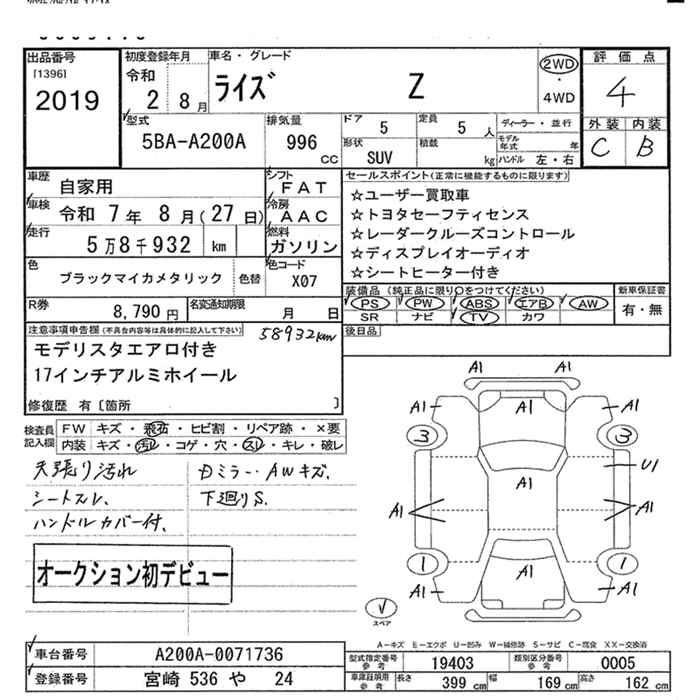 出品番号
[1396]
2019
初度登録年月
令和
2 8月
車名・グレード
ライズ Z
2WD
・
4WD
評価点
4
外装 内装
C B
型式
5BA-A200A
排気量
996 cc
ドア 5
定員 5 人
ディーラー・並行
モデル年式 年
形状 SUV
積載 kg
ハンドル 左・右
車歴 自家用
シフト FAT
車検 令和 7年 8月(27日)
冷房 AAC
走行 5万8千932 km
燃料 ガソリン
色 ブラックマイカメタリック 色替
色コード X07
R券 8,790 円
名変通知期限 月 日
セールスポイント(正常に機能するものに限ります)
☆ユーザー買取車
☆トヨタセーフティセンス
☆レーダークルーズコントロール
☆ディスプレイオーディオ
☆シートヒーター付き
装備品 (純正品に限り○をつけてください)
PS PW ABS エアB AW
SR ナビ TV カワ
新車保証書
有・無
後日品
注意事項申告欄(不具合内容等は具体的に記入して下さい)
58932km
モデリスタエアロ付き
17インチアルミホイール
修復歴 有〔箇所 〕
検査員記入欄
FW キズ・飛石・ヒビ割・リペア跡・×要
内装 キズ・汚レ・コゲ・穴・スレ・キレ・破レ
天張り汚れ
シートスレ、
ハンドルカバー付、
Dミラー・AWキズ、
下廻りS、
オークション初デビュー
A1 A1
A1 A1 A1
3 3
U1
A1
A1 A1
1 1
A1 A1 A1
スペア
A-キズ E-エクボ U-凹み W-補修跡 S-サビ C-腐食 XX-交換済
車台番号 A200A-0071736
登録番号 宮崎 536 や 24
型式指定番号 参考 19403
類別区分番号 参考 0005
車庫証明用 参考 長さ 399 cm 幅 169 cm 高さ 162 cm